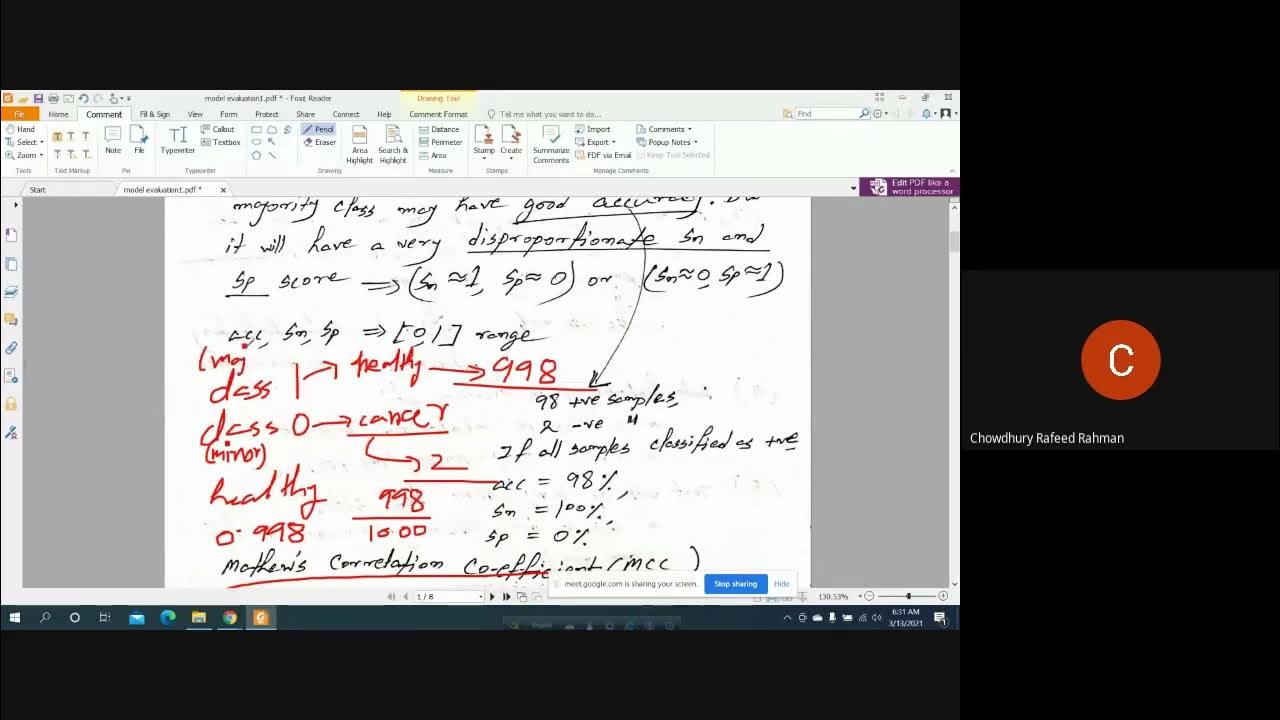 model evaluation1.pdf * - Foxit Reader
Drawing Tool
File Home Comment Fill & Sign View Form Protect Share Connect Help Comment Format Tell me what you want to do... Find
Hand
Select
Zoom
Tools
Text Markup
Note
File
Pin
Typewriter
Callout
Textbox
Typewriter
Pencil
Eraser
Drawing
Area Highlight
Search & Highlight
Distance
Perimeter
Area
Measure
Stamp
Create
Stamps
Summarize Comments
Import
Export
FDF via Email
Comments
Popup Notes
Keep Tool Selected
Manage Comments
Start
model evaluation1.pdf *
Edit PDF like a word processor
majority class may have good accuracy. But
it will have a very disproportionate Sn and
Sp score ⟹ (Sn ≈ 1, Sp ≈ 0) or (Sn ≈ 0, Sp ≈ 1)
acc, Sn, Sp ⟹ [0, 1] range
(maj
class 1 → healthy → 998
class 0 → cancer
(minor)
→ 2
healthy
998
0.998
1000
98 +ve samples,
2 -ve "
If all samples classified as +ve
acc = 98%,
Sn = 100%,
Sp = 0%
Mathew's Correlation Co-efficient (MCC)
meet.google.com is sharing your screen.
Stop sharing
Hide
1 / 8
130.53%
6:31 AM
3/13/2021
C
Chowdhury Rafeed Rahman